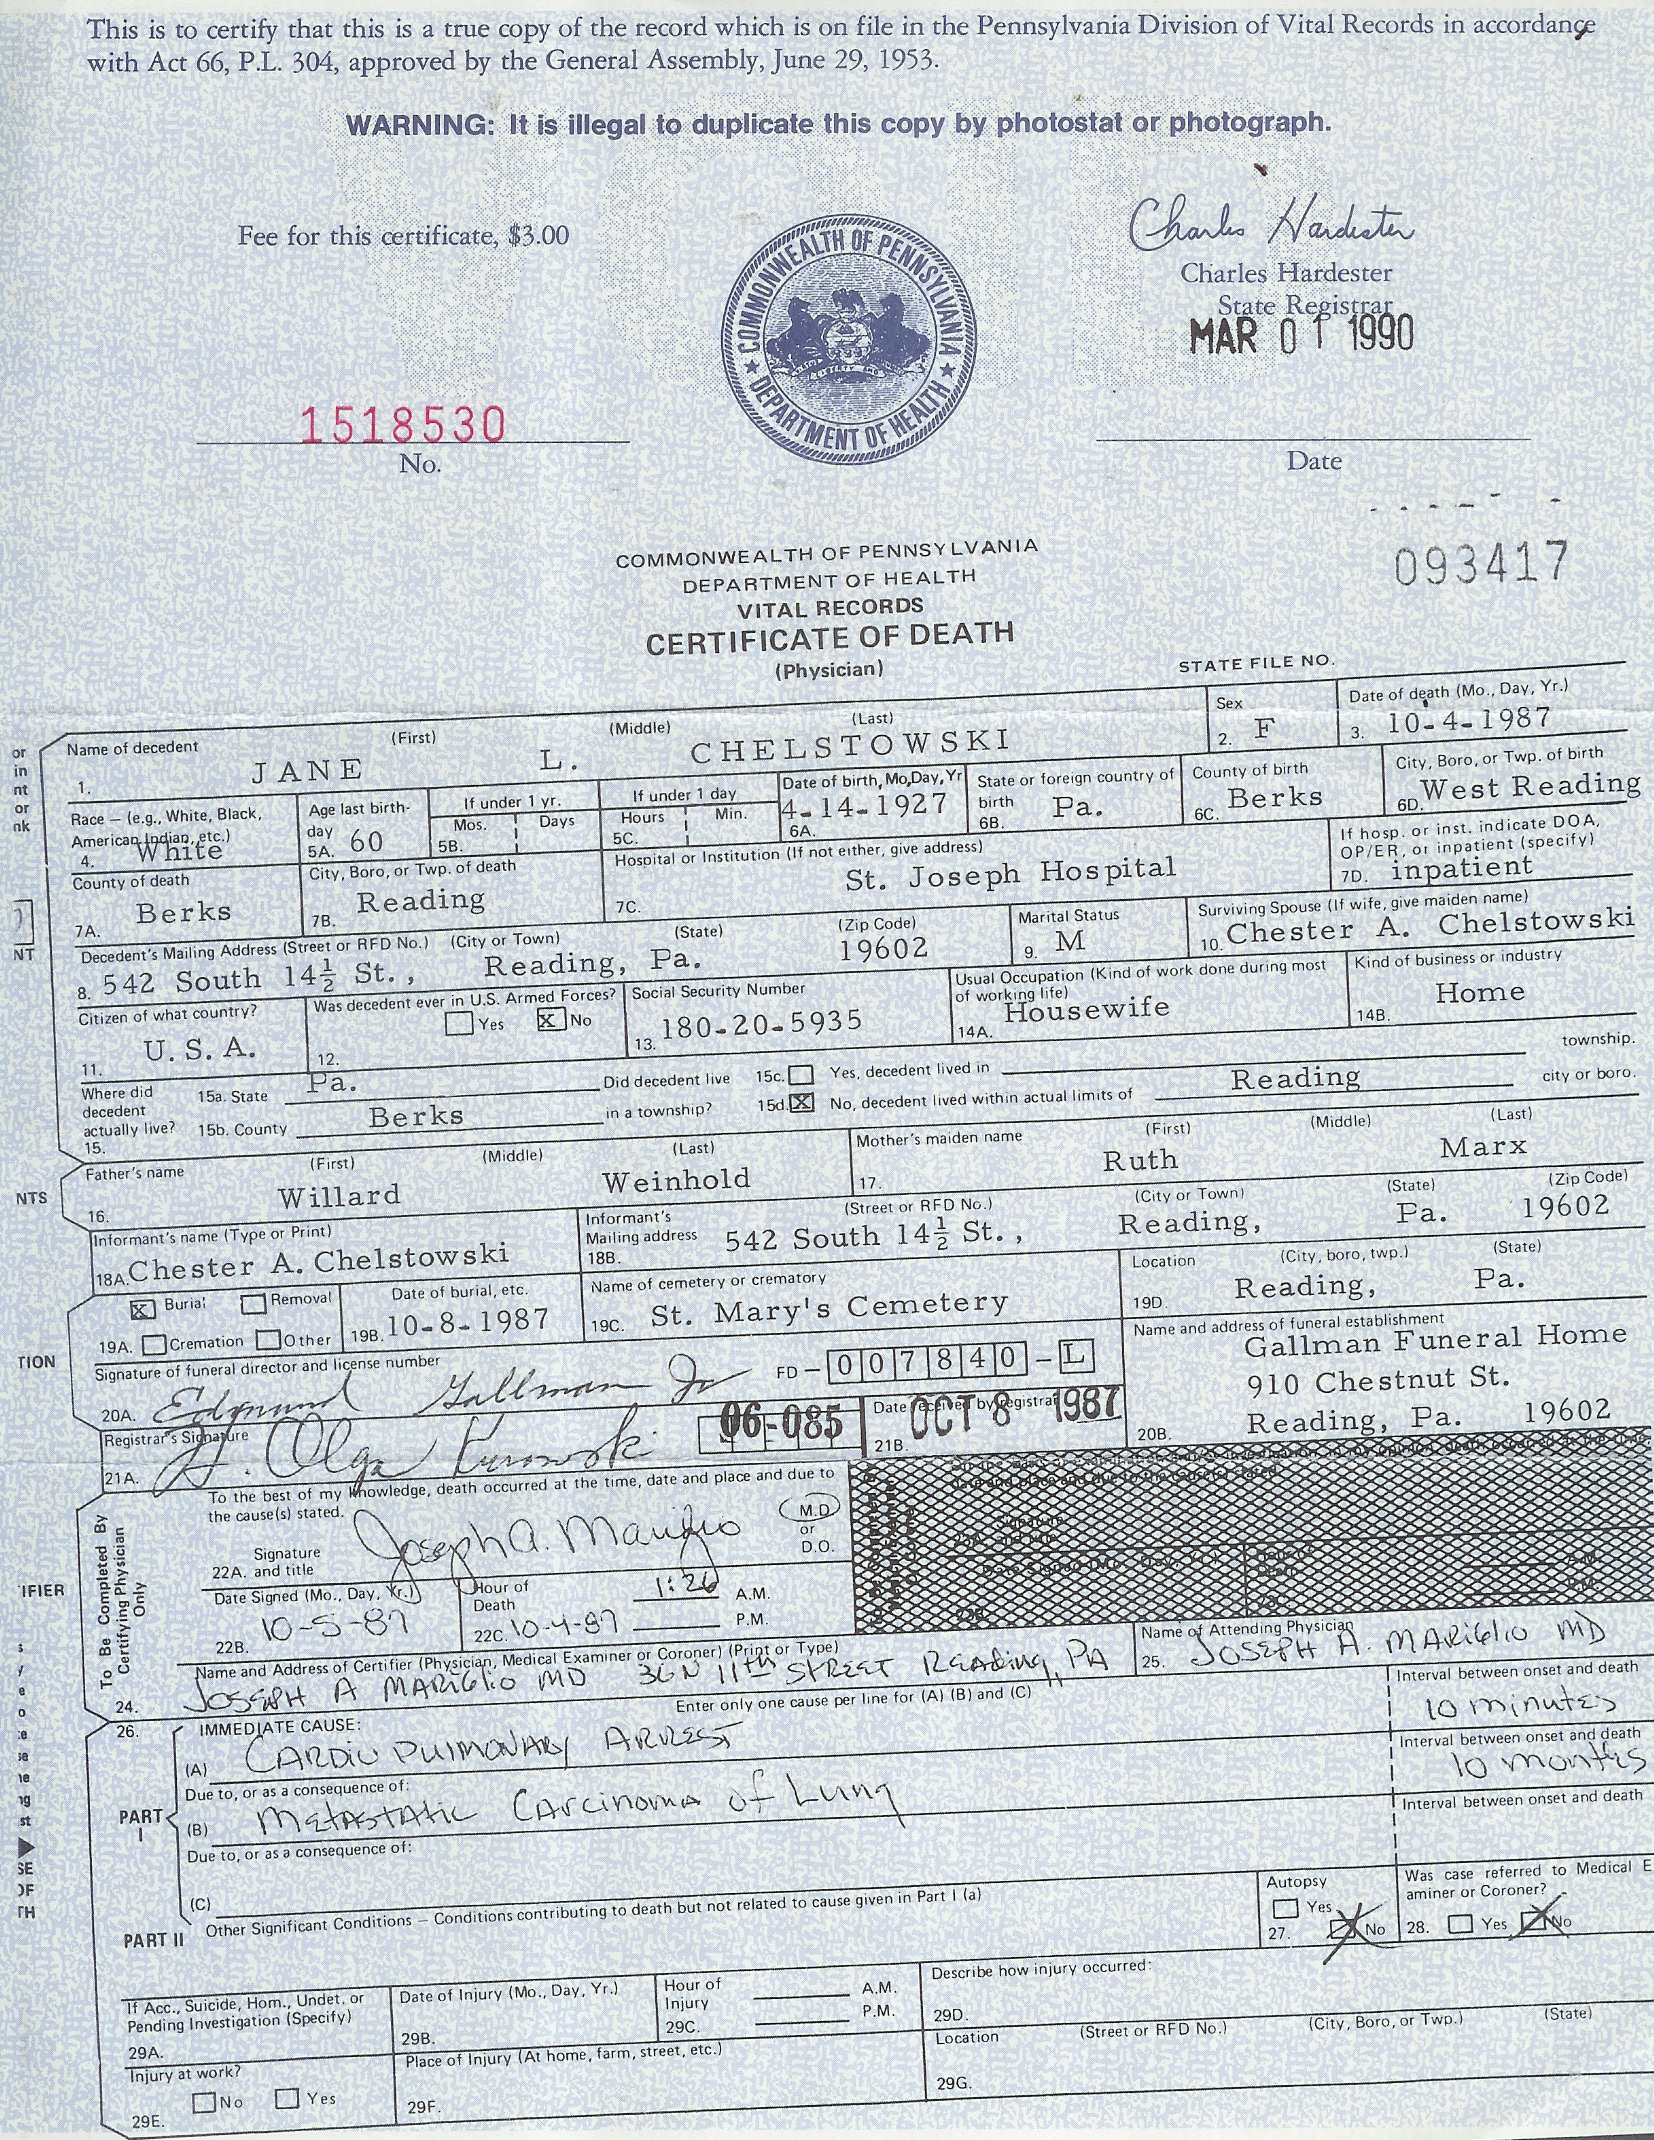 This is to certify that this is a true copy of the record which is on file in the Pennsylvania Division of Vital Records in accordance
with Act 66, P.L. 304, approved by the General Assembly, June 29, 1953.
WARNING: It is illegal to duplicate this copy by photostat or photograph.
Fee for this certificate, $3.00
COMMONWEALTH OF PENNSYLVANIA
DEPARTMENT OF HEALTH
Charles Hardester
Charles Hardester
State Registrar
MAR 01 1990
1518530
No.
Date
093417
COMMONWEALTH OF PENNSYLVANIA
DEPARTMENT OF HEALTH
VITAL RECORDS
CERTIFICATE OF DEATH
(Physician)
STATE FILE NO.
Name of decedent (First) (Middle) (Last)
1. JANE L. CHELSTOWSKI
Sex
2. F
Date of death (Mo., Day, Yr.)
3. 10-4-1987
Race – (e.g., White, Black,
American Indian, etc.)
4. White
Age last birth-
day
5A. 60
If under 1 yr.
Mos. Days
5B.
If under 1 day
Hours Min.
5C.
Date of birth, Mo,Day,Yr
4-14-1927
6A.
State or foreign country of
birth Pa.
6B.
County of birth
6C. Berks
City, Boro, or Twp. of birth
6D. West Reading
County of death
7A. Berks
City, Boro, or Twp. of death
7B. Reading
Hospital or Institution (If not either, give address)
7C. St. Joseph Hospital
If hosp. or inst. indicate DOA,
OP/ER, or inpatient (specify)
7D. inpatient
Decedent's Mailing Address (Street or RFD No.) (City or Town) (State) (Zip Code)
8. 542 South 14½ St., Reading, Pa. 19602
Marital Status
9. M
Surviving Spouse (If wife, give maiden name)
10. Chester A. Chelstowski
Citizen of what country?
11. U.S.A.
Was decedent ever in U.S. Armed Forces?
Yes X No
12.
Social Security Number
13. 180-20-5935
Usual Occupation (Kind of work done during most
of working life)
14A. Housewife
Kind of business or industry
14B. Home
Where did
decedent
actually live?
15.
15a. State Pa.
15b. County Berks
Did decedent live
in a township?
15c. Yes, decedent lived in township.
15d. X No, decedent lived within actual limits of Reading city or boro.
Father's name (First) (Middle) (Last)
16. Willard Weinhold
Mother's maiden name (First) (Middle) (Last)
17. Ruth Marx
Informant's name (Type or Print)
18A. Chester A. Chelstowski
Informant's
Mailing address (Street or RFD No.) (City or Town) (State) (Zip Code)
18B. 542 South 14½ St., Reading, Pa. 19602
X Burial Removal
19A. Cremation Other
Date of burial, etc.
19B. 10-8-1987
Name of cemetery or crematory
19C. St. Mary's Cemetery
Location (City, boro, twp.) (State)
19D. Reading, Pa.
Signature of funeral director and license number
20A. Edmund Gallman Jr FD – 007840 – L
Name and address of funeral establishment
Gallman Funeral Home
910 Chestnut St.
20B. Reading, Pa. 19602
Registrar's Signature
21A. Olga
06-085
Date received by registrar
21B. OCT 8 1987
To Be Completed By
Certifying Physician
Only
To the best of my knowledge, death occurred at the time, date and place and due to
the cause(s) stated.
Signature
22A. and title
Joseph A. Mariglio
M.D.
or
D.O.
Date Signed (Mo., Day, Yr.)
22B. 10-5-87
Hour of
Death 1:26 A.M.
22C. 10-4-87 P.M.
Name and Address of Certifier (Physician, Medical Examiner or Coroner) (Print or Type)
24. JOSEPH A MARIGLIO MD 36 N 11th STREET Reading, PA
Name of Attending Physician
25. JOSEPH A. MARIGLIO MD
26. IMMEDIATE CAUSE: Enter only one cause per line for (A) (B) and (C)
PART I
(A) CARDIO PULMONARY ARREST
Interval between onset and death
10 minutes
Due to, or as a consequence of:
(B) Metastatic Carcinoma of Lung
Interval between onset and death
10 months
Due to, or as a consequence of:
(C)
Interval between onset and death
PART II
Other Significant Conditions – Conditions contributing to death but not related to cause given in Part I (a)
Autopsy
Yes
27. X No
Was case referred to Medical E
aminer or Coroner?
28. Yes X No
If Acc., Suicide, Hom., Undet. or
Pending Investigation (Specify)
29A.
Date of Injury (Mo., Day, Yr.)
29B.
Hour of
Injury A.M.
29C. P.M.
Describe how injury occurred:
29D.
Injury at work?
29E. No Yes
Place of Injury (At home, farm, street, etc.)
29F.
Location (Street or RFD No.) (City, Boro, or Twp.) (State)
29G.
or
in
nt
or
nk
NT
NTS
TION
IFIER
SE
OF
TH